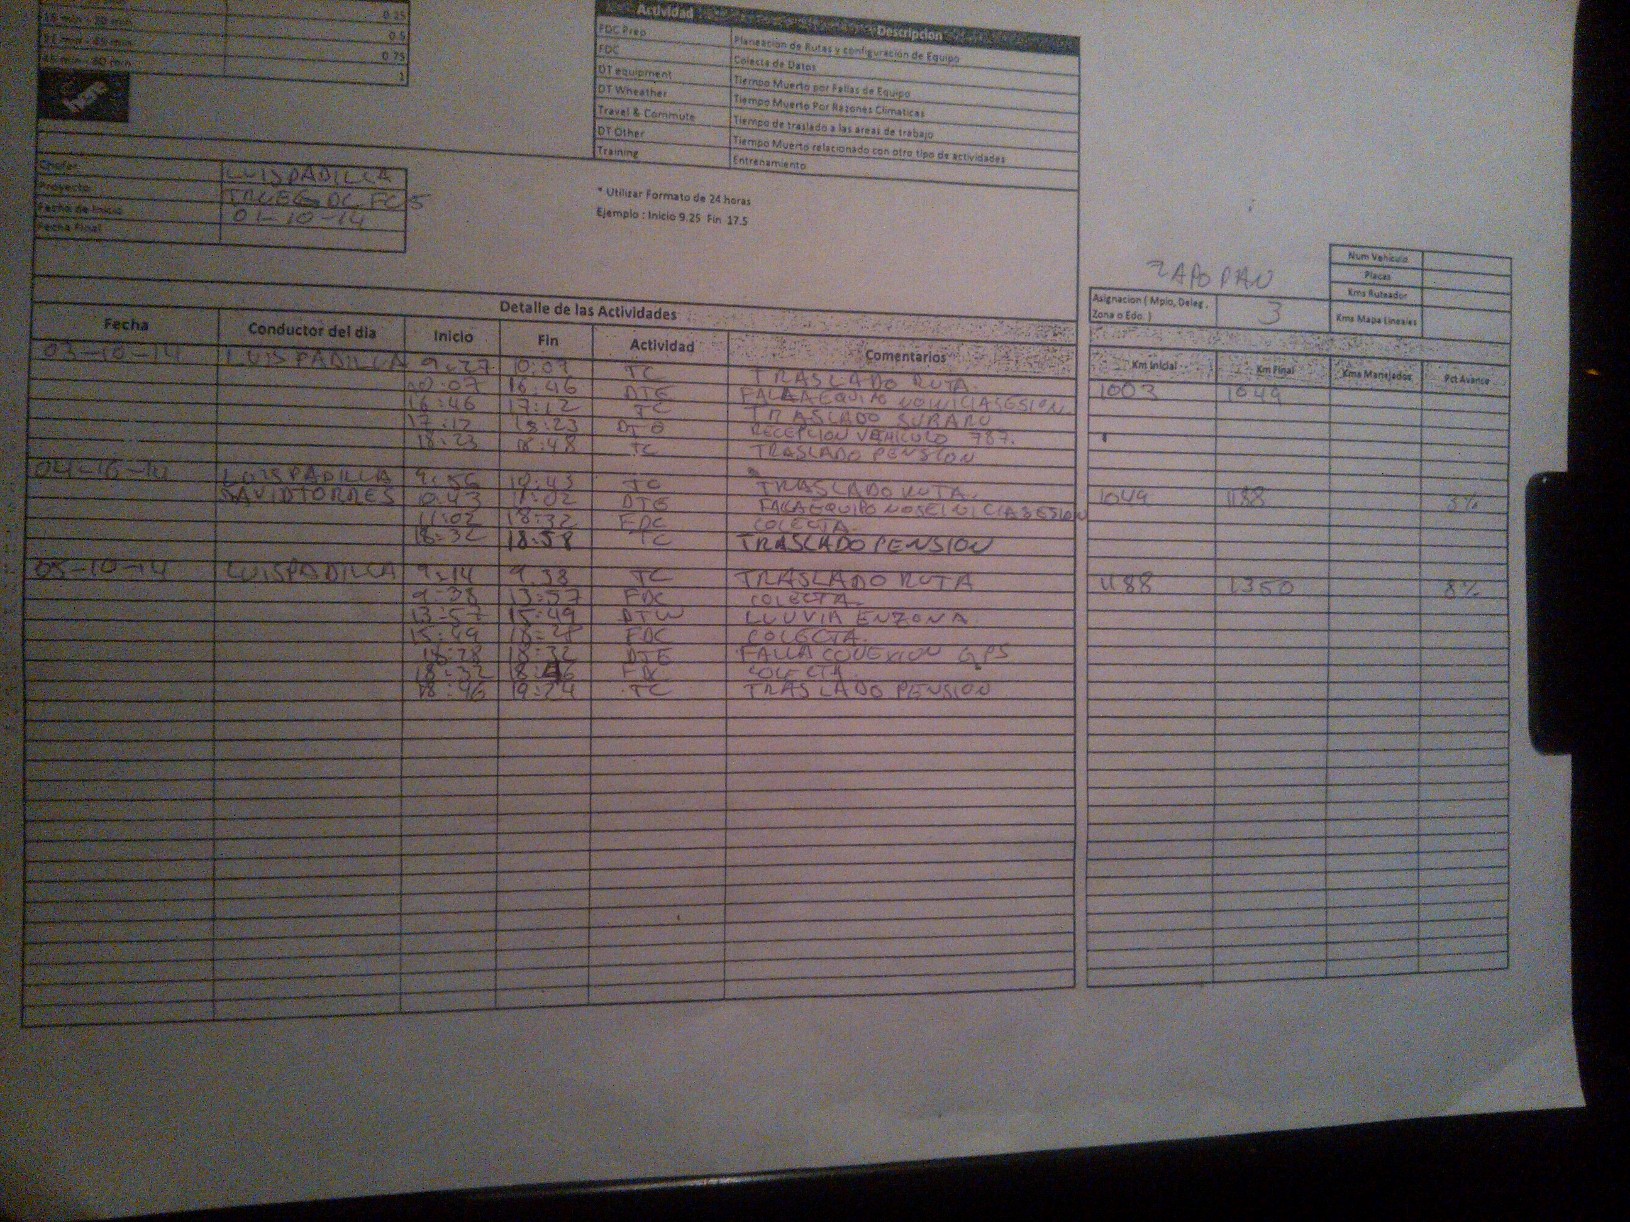 0.25
16 min - 30 min 0.5
31 min - 45 min 0.75
46 min - 60 min 1
here
Actividad Descripcion
FDC Prep Planeacion de Rutas y configuracion de Equipo
FDC Colecta de Datos
DT equipment Tiempo Muerto por Fallas de Equipo
DT Wheather Tiempo Muerto Por Razones Climaticas
Travel & Commute Tiempo de traslado a las areas de trabajo
DT Other Tiempo Muerto relacionado con otro tipo de actividades
Training Entrenamiento
Chofer LUIS PADILLA
Proyecto TRUE
Fecha de Inicio 01-10-14
Fecha Final
* Utilizar Formato de 24 horas
Ejemplo : Inicio 9.25 Fin 17.5
ZAPOPAN
Asignacion ( Mpio, Deleg ,
Zona o Edo. ) 3
Num Vehiculo
Placas
Kms Ruteador
Kms Mapa Lineales
Detalle de las Actividades
Fecha Conductor del dia Inicio Fin Actividad Comentarios Km Inicial Km Final Kms Manejados Pct Avance
03-10-14 LUIS PADILLA 9:27 10:07 TC TRASLADO RUTA. 1003 1049
10:07 16:46 DTE FALLA EQUIPO NO INICIA SESION
16:46 17:12 TC TRASLADO SUBARU
17:12 18:23 RECEPCION VEHICULO 787.
18:23 18:48 TC TRASLADO PENSION
04-10-14 LUIS PADILLA 9:56 10:43 TC TRASLADO RUTA. 1049 1188
DAVID TORRES 10:43 11:02 DTE FALLA EQUIPO NO SE INICIA SESION
11:02 18:32 FDC COLECTA.
18:32 18:58 TC TRASLADO PENSION
05-10-14 LUIS PADILLA 9:14 9:38 TC TRASLADO RUTA 1188 1350 8%
9:38 13:57 FDC COLECTA.
13:57 15:49 DTW LLUVIA EN ZONA.
15:49 18:28 FDC COLECTA.
18:28 18:32 DTE FALLA CONEXION GPS
18:32 18:46 FDC COLECTA.
18:46 19:24 TC TRASLADO PENSION